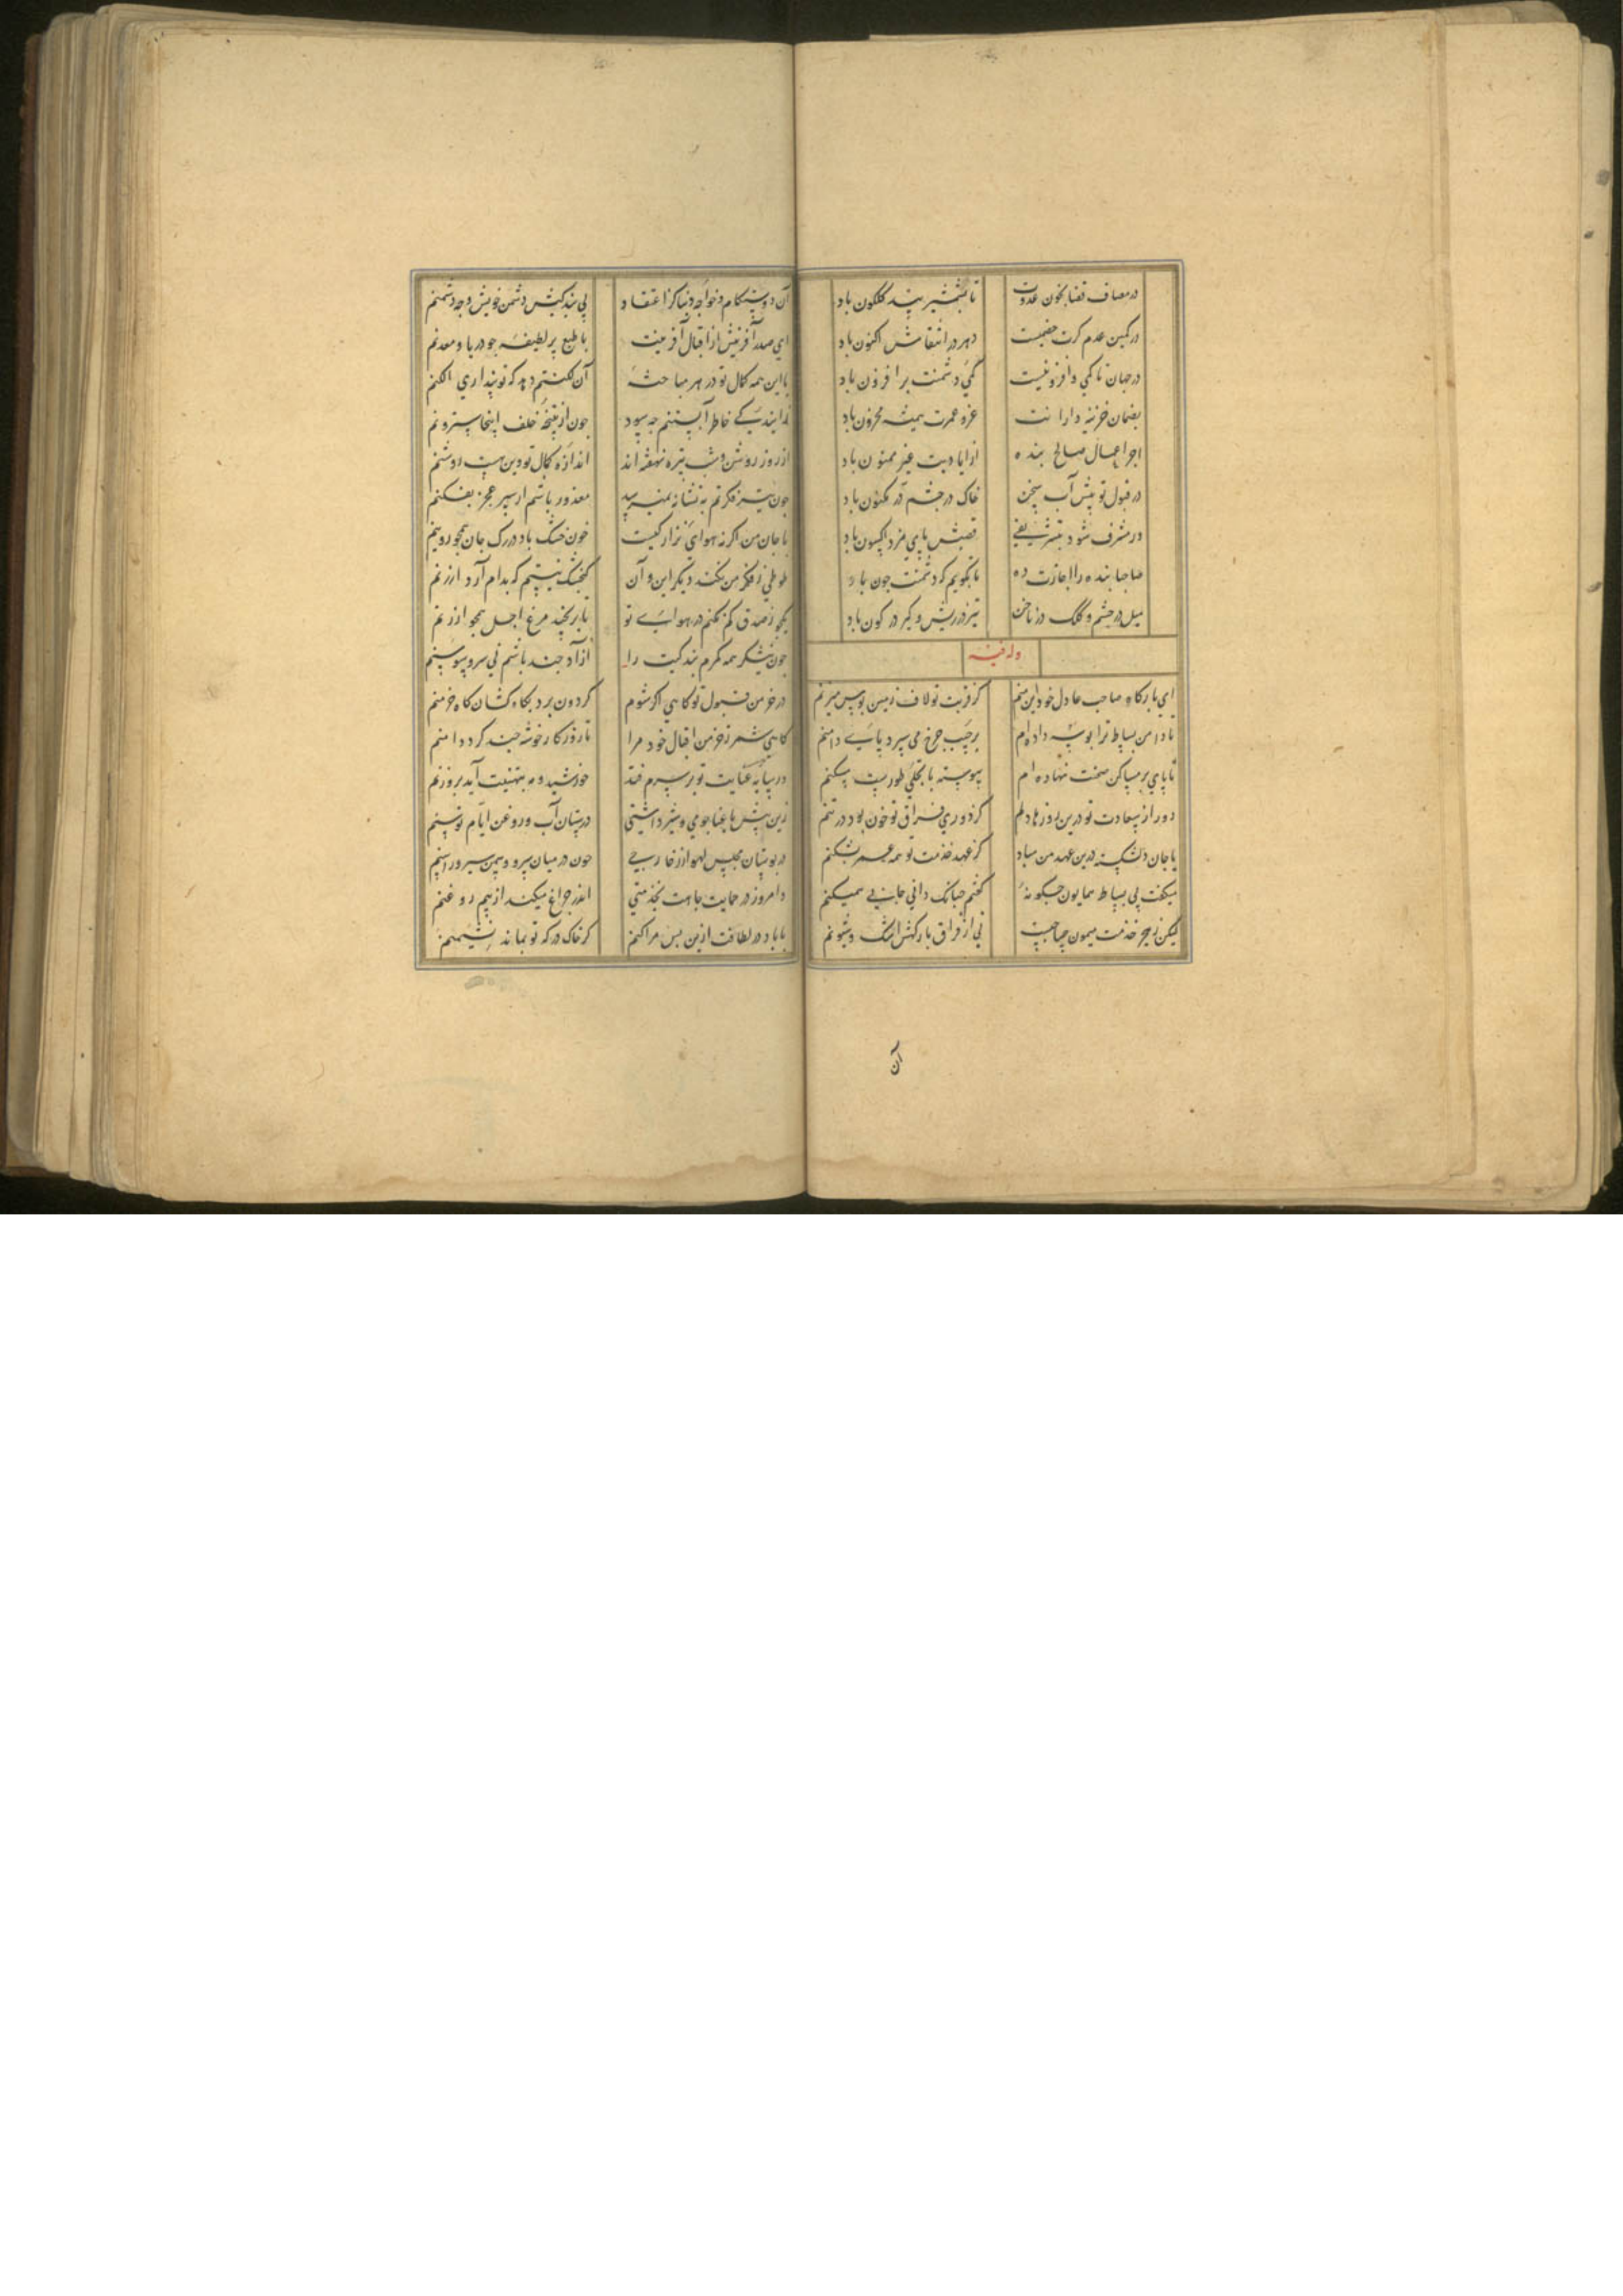 در مصاف قضا بخون عدوت تا بشمشیر بید کلکون باد
در کمین عدم کرت خصمیست دهر در انتقامش اکنون باد
در جهان تا کمی و افزونیست کمی دشمنت بر افزون باد
بضمان خزینه دارا نت عز و عمرت همیشه مخزون باد
اجر اعمال صالح بنده از ایادیت غیر ممنون باد
در قبول تو پیش آب سخن خاک در چشم در مکنون باد
ور مشرف شود بتشریفی قصبش پای مزد اکسون باد
صاحبا بنده را اجازت ده تا بکویم که دشمنت جون باد
میل در چشم و کلک در ناخن تیز در ریش و کیر در کون باد
وله فیه
ای بارکاه صاحب عادل خود این منم کز قربت تو لاف زمین بوس میزنم
تا دامن بساط ترا بوسه داده ام بر جیب جرخ می سپرد پای دامنم
تا پای بر مساکن صحنت نهاده ام پیوسته با تجلی طورست مسکنم
دور از سعادت تو درین روزها دلم کز دوری فراق تو خون بود در تنم
با جان دلشکسته درین عهد من مباد کز عهد خدمت تو همه عمر بشکنم
میکفت بی بساط همایون جکونه کفتم جنانک دانی جانی همیکنم
لیکن ز هیج خدمت میمون صاحبست نی از فراق بارکهش اشک و شیونم
آن
آن دوستکام و خواجه دنیا کز اعتقاد بی بندکیش دشمن خویش و جه دشمنم
ای صدر آفرینش از اقبال آفرینت با طبع پر لطیفه جو دریا و معدنم
با این همه کمال تو در هر مباحثه آن لکنتم دهد که تو پنداری الکنم
زاندیشه کی خاطر آبستنم جه سود جون از نتیجه خلف اینجا سترونم
از روز روشن و شب تیره نهفته اند اندازه کمال تو وین هست روشنم
جون تیر فکرتم به نشانه نمیرسد معذور باشم ار سپر عجز بفکنم
با جان من اکر نه هوای تو زار کیست خون خشک باد در رک جان همجو روینم
طوطی ز فکر من نکند دیکر این و آن کنجشک نیستم که بدام آرد ارزنم
یکجو ز صدق کم نکنم در هوای تو تا بر نجیند مرغ اجل همجو ارزنم
جون نیشکر همه کمرم بندکیت را آزاد جند باشم نی سرو و سوسنم
در خرمن قبول تو کاهی اکر شوم کردون برد بکاه کشان کاه خرمنم
کاهی شمر ز خرمن اقبال خود مرا تا روزکار خوشه جند کرد دامنم
ور سایه عنایت تو بر سرم فتد خورشید و مه بتهنیت آید بروزنم
زین پیش با عنا جو می و شیر داشتی در بستان آب و روغن ایام توسنم
در بوستان مجلس لهو از زفاریی جون در میان سرو و سمن سیر و راسنم
و امروز در حمایت جاهت بخدمتی اندر جراغ میکند از بیم روغنم
با باد در لطافت ازین بس مرا کنم کز خاک درکه تو بماند نشیمنم